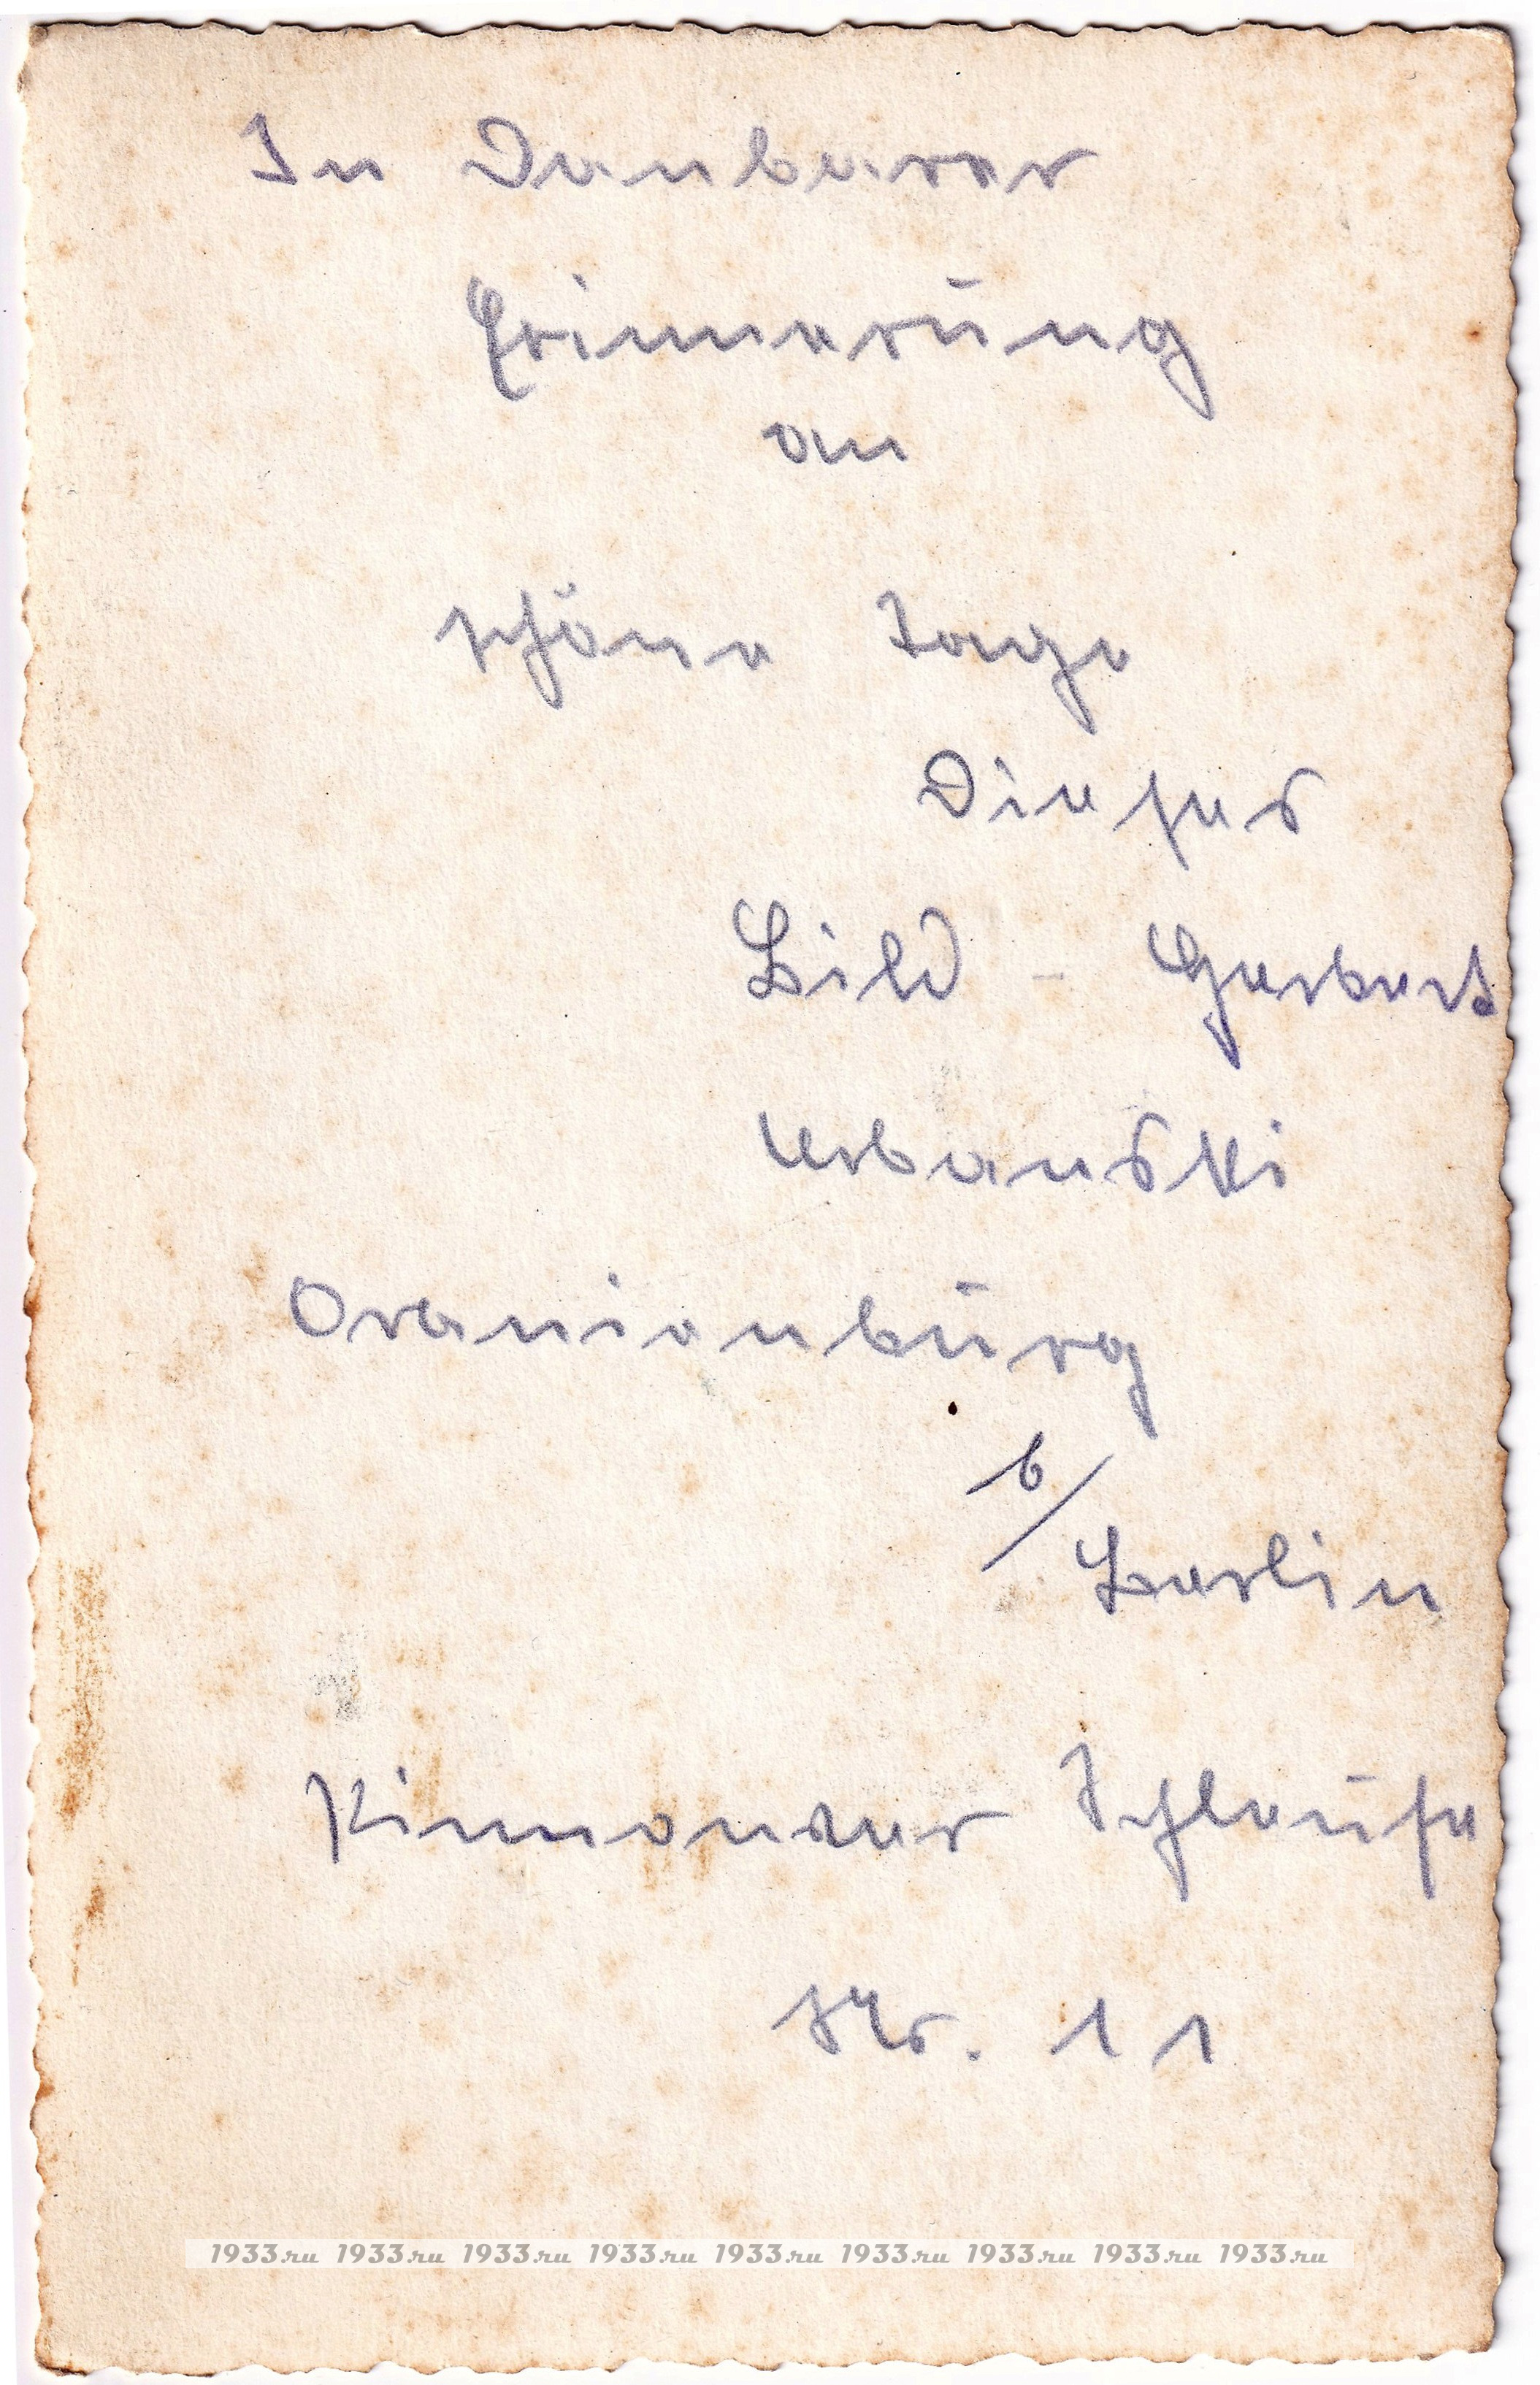 In Danbarer
Erinnerung
an
schöne Tage
Dieses
Bild - Herbert
Urbanski
Oranienburg
b/
Berlin
Pinnower Schleuse
Nr. 11
1933.ru 1933.ru 1933.ru 1933.ru 1933.ru 1933.ru 1933.ru 1933.ru 1933.ru